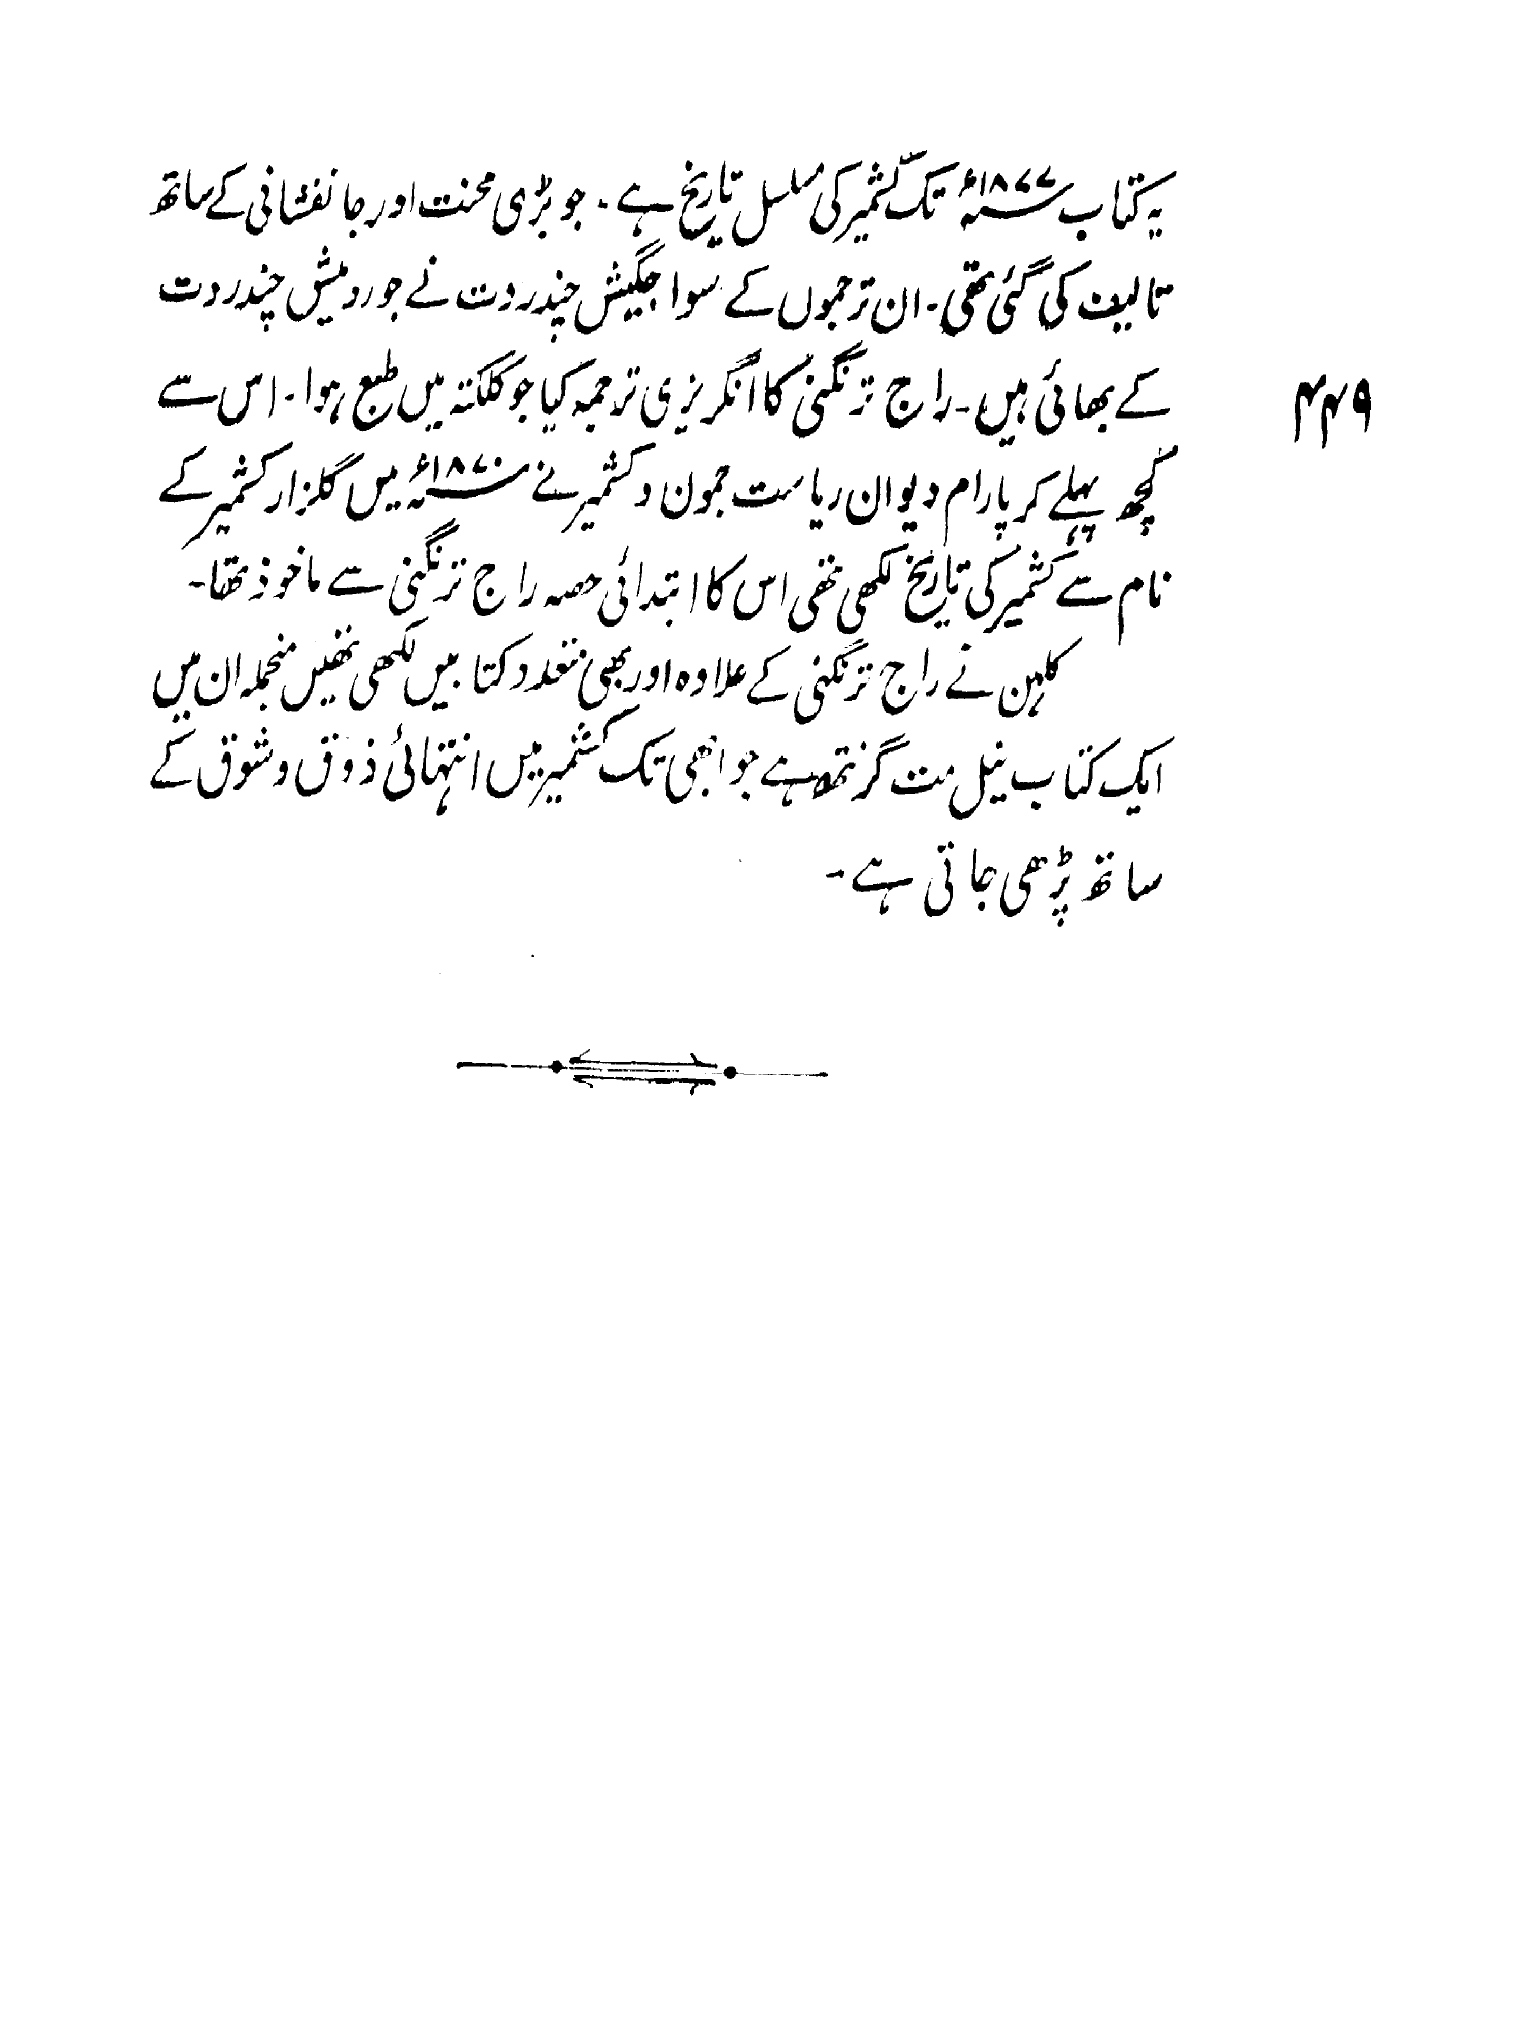 یہ کتاب ۱۸۷۷ء تک کشمیر کی مسلسل تاریخ ہے۔ جو بڑی محنت اور جانفشانی کے ساتھ
تالیف کی گئی تھی۔ ان ترجموں کے سوا جگیش چندر دت نے جو ردمیش چندر دت
کے بھائی ہیں۔ راج ترنگنی کا انگریزی ترجمہ کیا جو کلکتہ میں طبع ہوا۔ اس سے
۴۴۹
کچھ پہلے کرپارام دیوان ریاست جموں و کشمیر نے ۱۸۷۰ء میں گلزار کشمیر کے
نام سے کشمیر کی تاریخ لکھی تھی اس کا ابتدائی حصہ راج ترنگنی سے ماخوذ تھا۔
کلہن نے راج ترنگنی کے علاوہ اور بھی متعدد کتابیں لکھی تھیں منجملہ ان میں
ایک کتاب نیل مت گرنتھ ہے جو ابھی تک کشمیر میں انتہائی ذوق و شوق کے
ساتھ پڑھی جاتی ہے۔